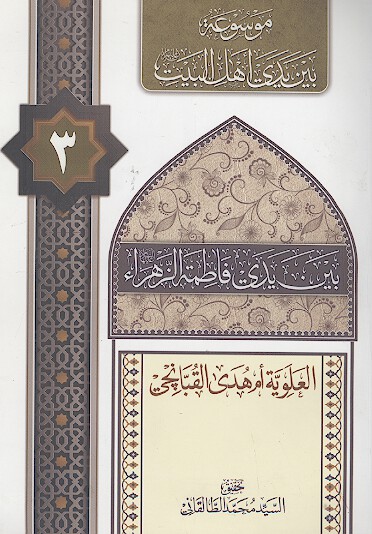 موسوعة
بين يدي أهل البيت
٣
بين يدي فاطمة الزهراء
العلوية أم هدى القبانجي
تحقيق
السيد محمد الطالقاني